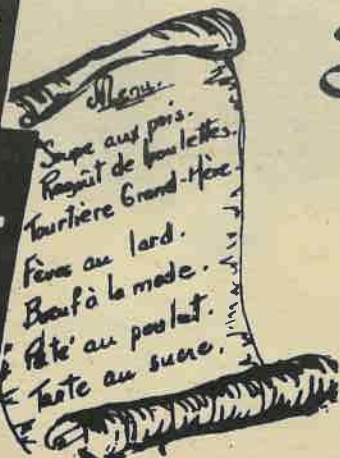 Menu.
Soupe aux pois.
Ragoût de boulettes.
Tourtière Grand-Mère.
Fèves au lard.
Boeuf à la mode.
Pâté au poulet.
Tarte au sucre.